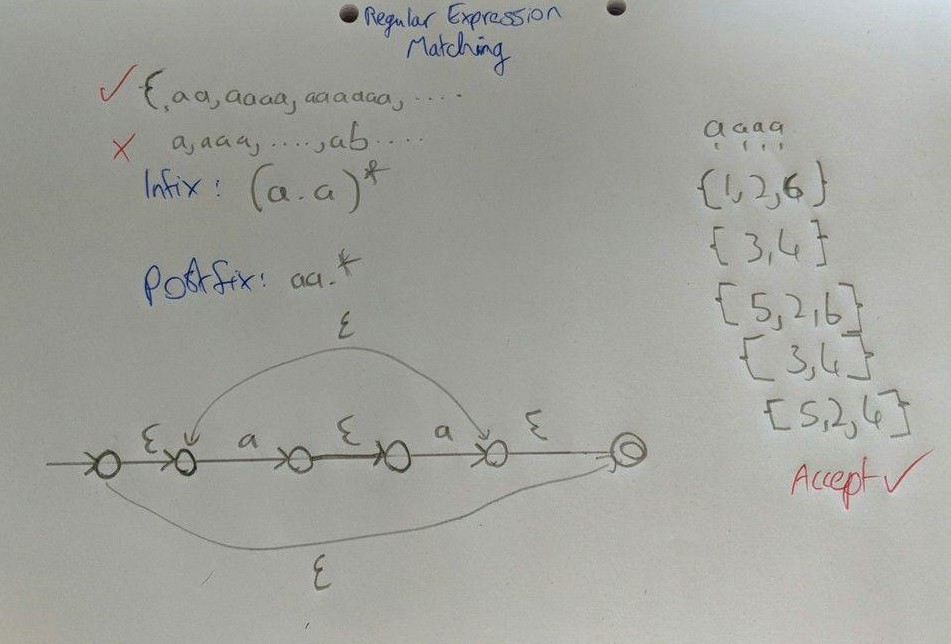 Regular Expression
Matching
✓ ε, aa, aaaa, aaaaaa, ....
✗ a, aaa, ...., ab ....
Infix: (a.a)*
Postfix: aa.*
aaaa
{1,2,6}
{3,4}
{5,2,6}
{3,4}
{5,2,4}
Accept ✓
ε
ε a ε a ε
ε